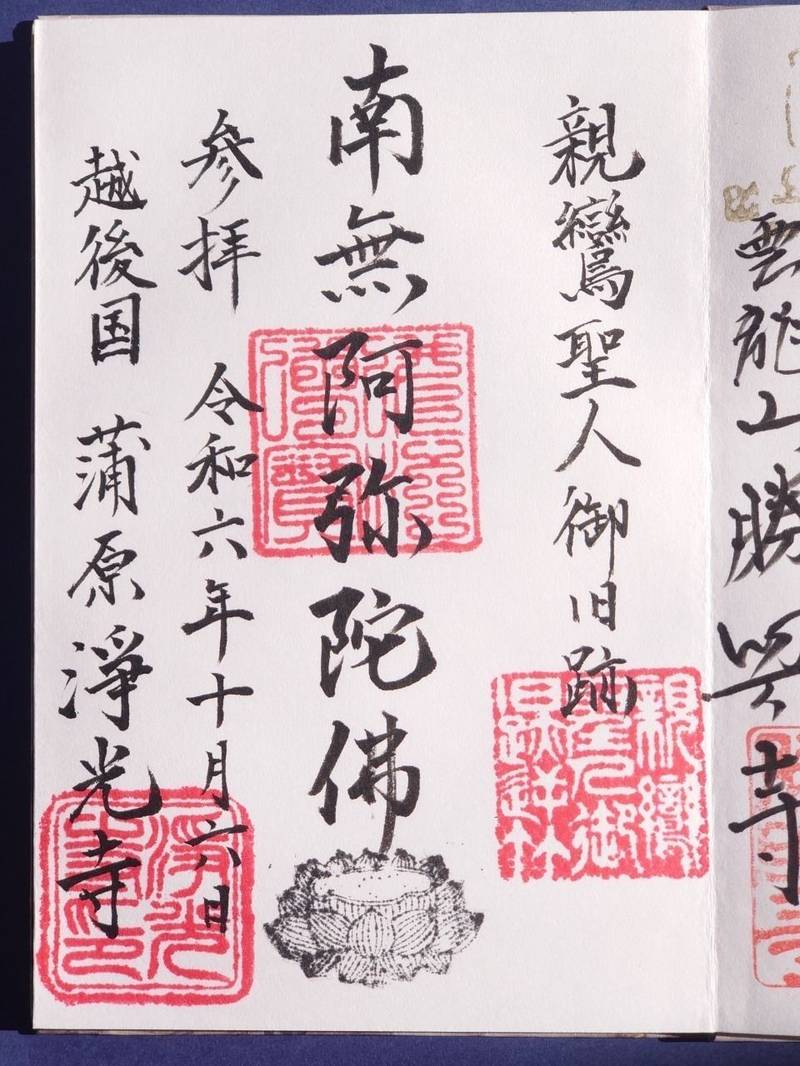 親鸞聖人御旧跡
南無阿弥陀佛
参拝 令和六年十月六日
越後国 蒲原淨光寺
雲龍山勝興寺